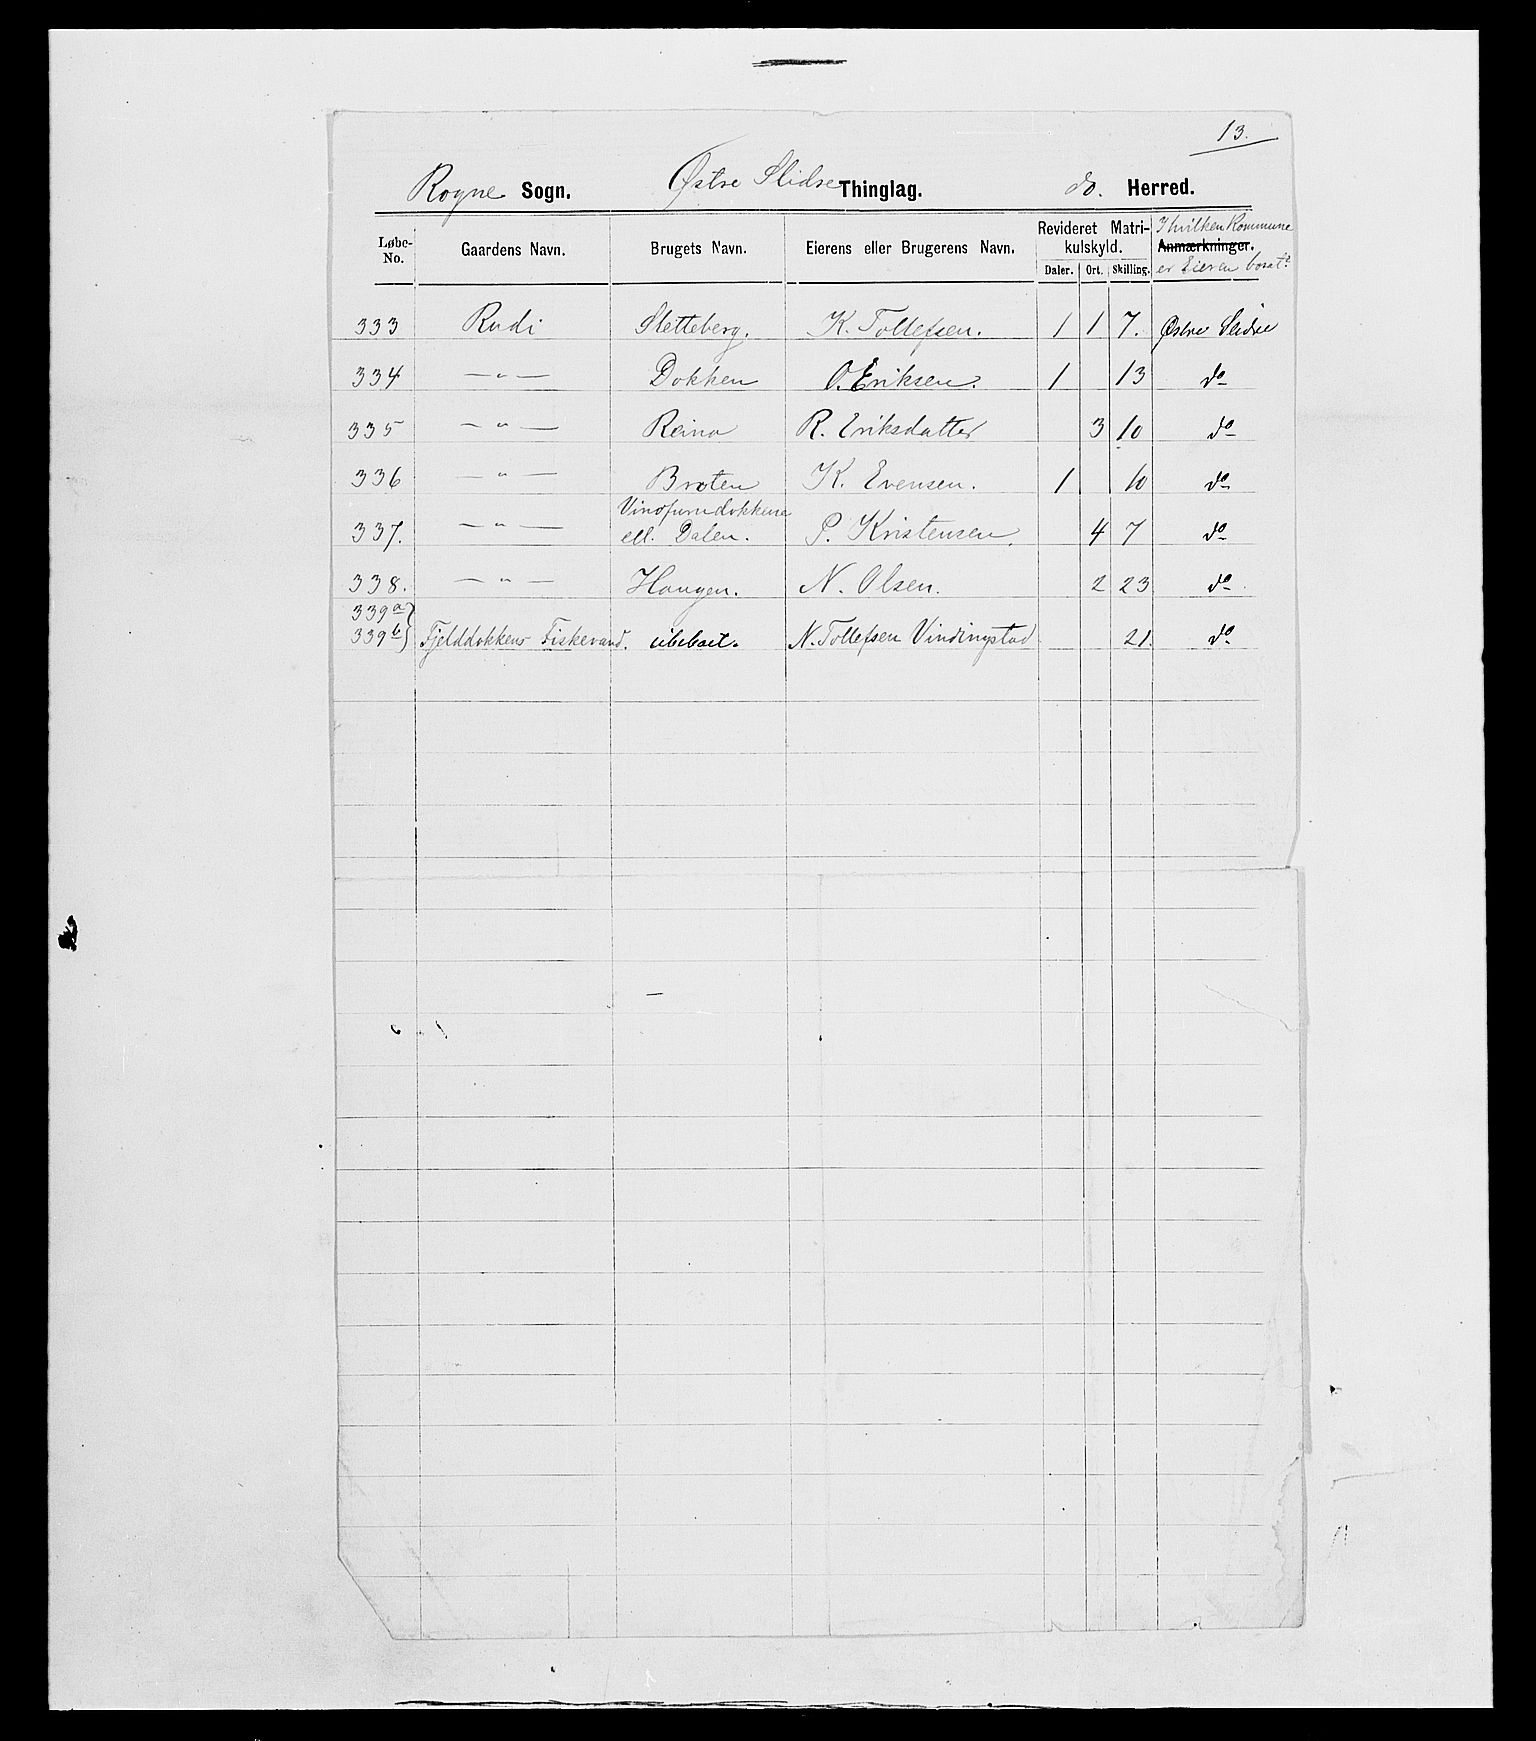 13.
Rogne Sogn. Østre Slidre Thinglag. do. Herred.
Løbe-No. Gaardens Navn. Brugets Navn. Eierens eller Brugerens Navn. Revideret Matri-kulskyld. Daler. Ort. Skilling. Anmærkninger. I hvilken Kommune er Eieren bosat?
333 Rudi Sletteberg. K. Tollefsen. 1 1 7. Østre Slidre
334 — " — Dokken O. Eriksen. 1 13 do
335 — " — Reina R. Eriksdatter 3 10 do
336 — " — Broten K. Evensen. 1 10 do
Vinofurudokkene
337. — " — ell. Dalen. P. Kristensen. 4 7 do
338. — " — Haugen. N. Olsen. 2 23 do
339a
339b Fjelddokkens Fiskevand. ubeboet. N. Tollefsen Vindingstad 21. do